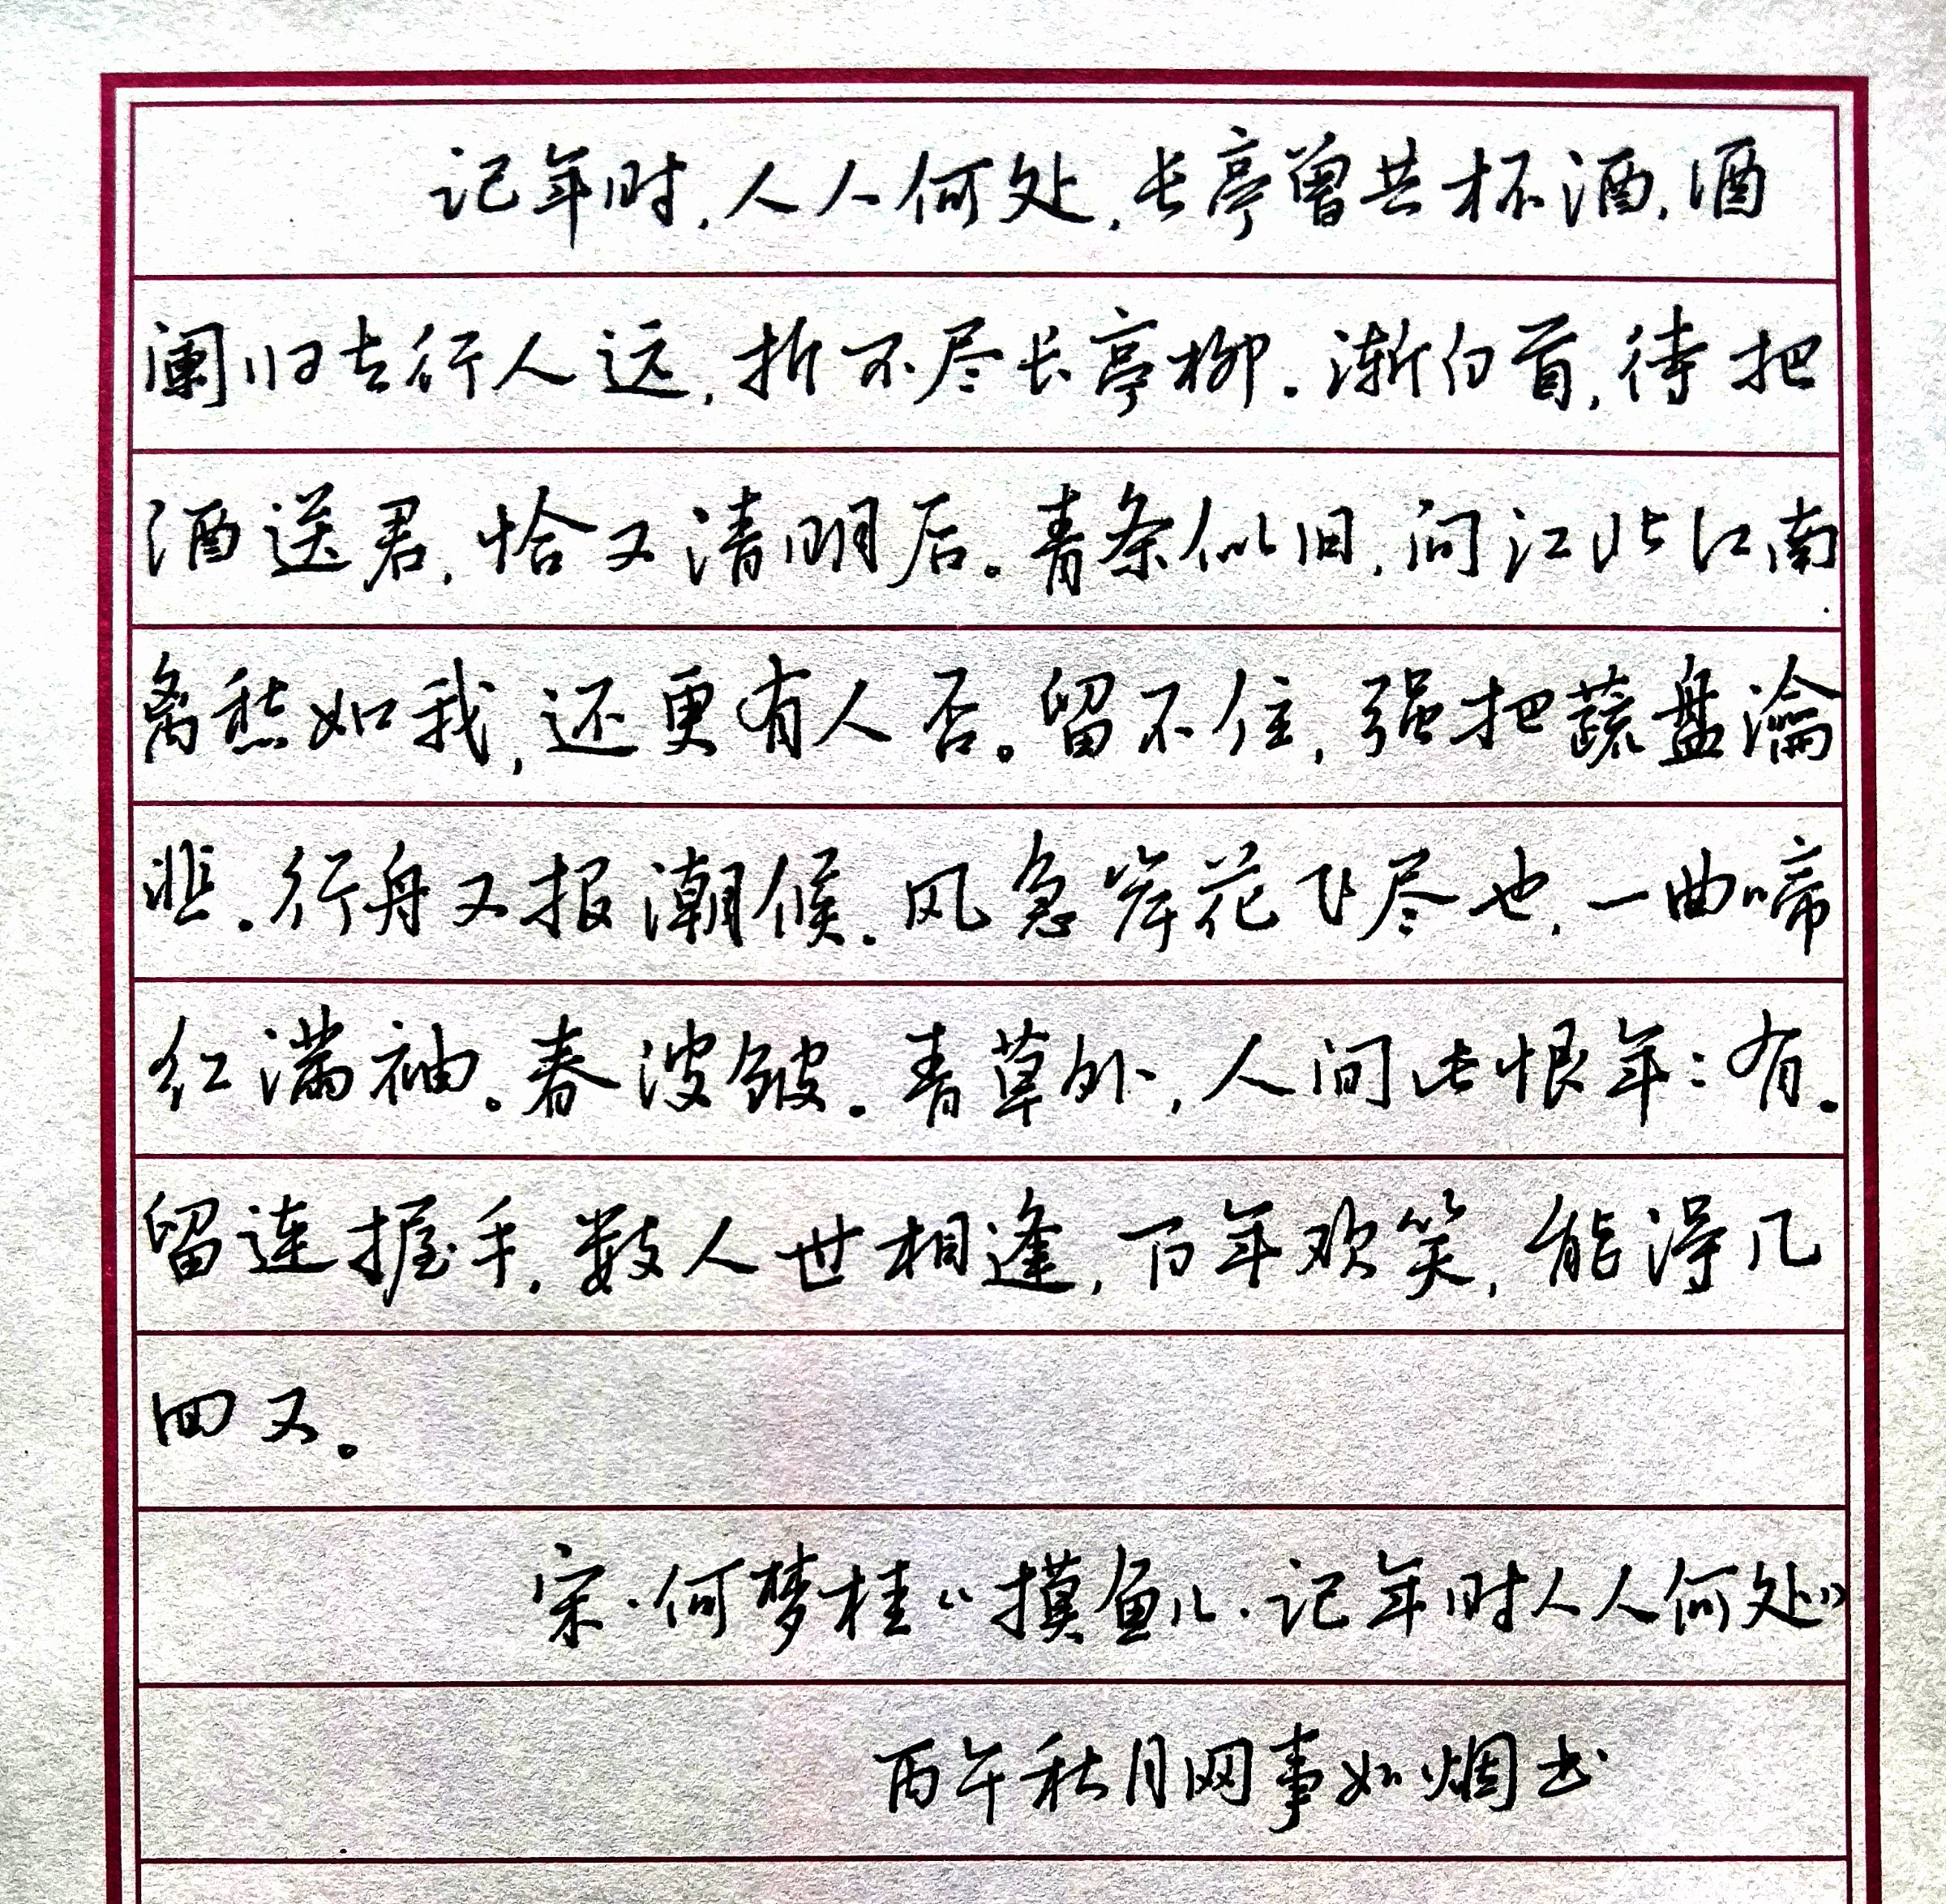 记年时,人人何处,长亭曾共杯酒,酒
阑归去行人远,折不尽长亭柳。渐白首,待把
酒送君,恰又清明后。青条似旧,问江北江南
离愁如我,还更有人否。留不住,强把蔬盘瀹
韭。行舟又报潮候。风急岸花飞尽也,一曲啼
红满袖。春波皱。青草外,人间此恨年:有。
留连握手,数人世相逢,百年欢笑,能得几
回又。
宋·何梦桂《摸鱼儿·记年时人人何处》
丙午秋月网事如烟书